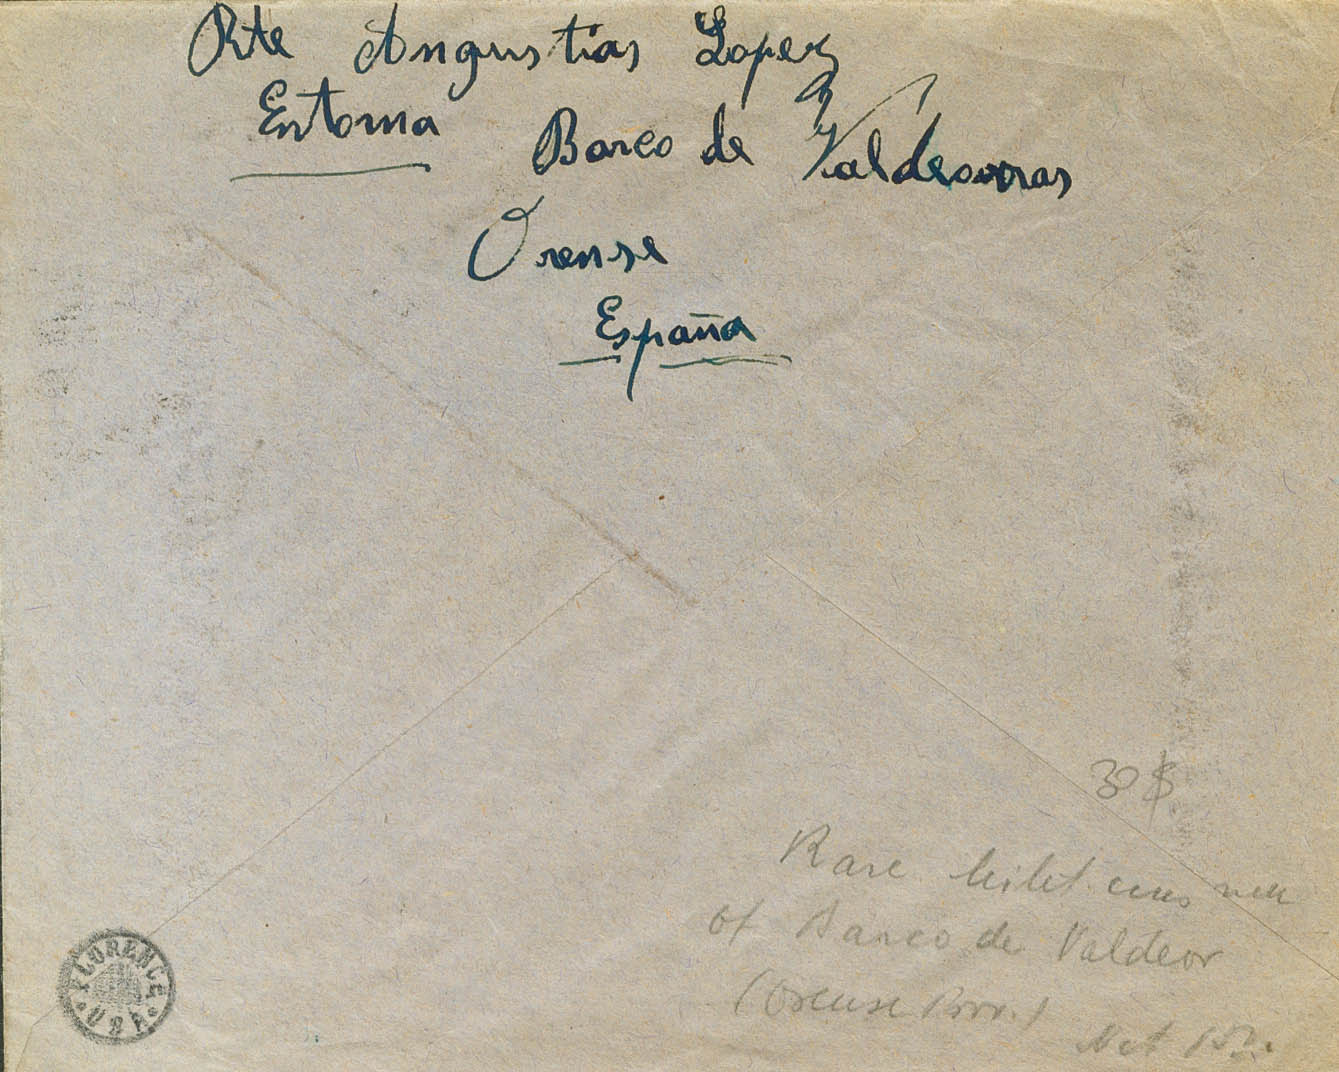 Rte Angustias Lopez
Entoma Barco de Valdeorras
Orense
España
30 $
Rare
of Barco de Valdeor
(Orense Prov.)
Net
FLORENCE